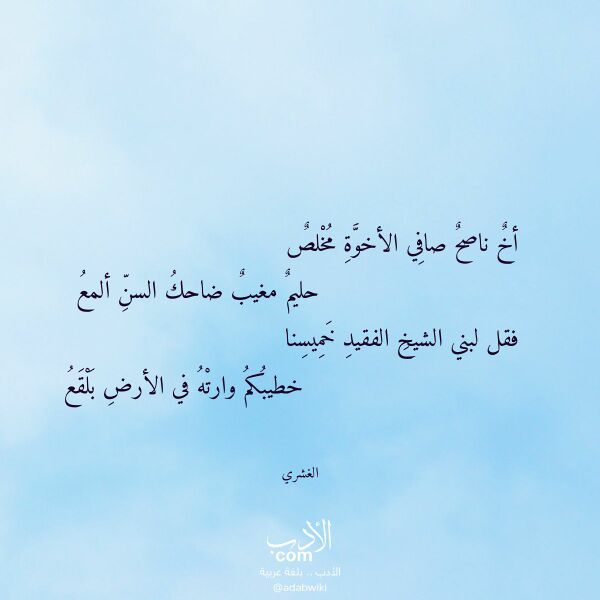 أخٌ ناصحٌ صافِي الأخوَّةِ مُخْلصٌ
حليمٌ مغيبٌ ضاحكُ السنِّ ألمعُ
فقل لبني الشيخِ الفقيدِ خَمِيسِنا
خطيبُكمُ وارتْهُ في الأرضِ بَلْقَعُ
الغشري
الأدب
com
الأدب .. بلغة عربية
@adabwiki